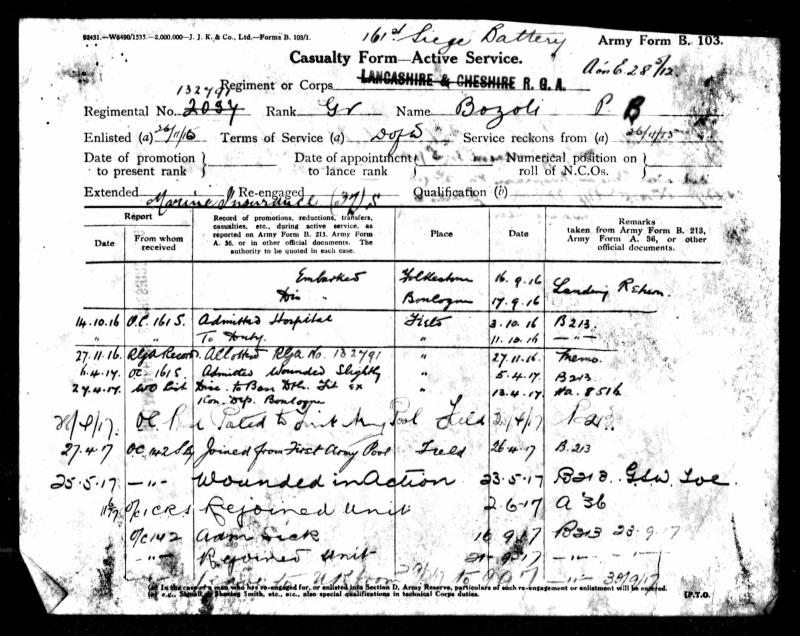 92431.—W6490/1535.—2,000,000—J. J. K. & Co., Ltd.—Forms B. 103/1.
161st Siege Battery
Army Form B. 103.
Casualty Form—Active Service.
Regiment or Corps LANCASHIRE & CHESHIRE R.G.A.
132791
Regimental No. 2037 Rank Gr Name Bozoli P. B
Enlisted (a) 26/11/15 Terms of Service (a) Service reckons from (a) 26/11/15
Date of promotion to present rank
Date of appointment to lance rank
Numerical position on roll of N.C.Os.
Extended Re-engaged Qualification (b)
Marine Insurance (37) S
Report
Date From whom received
Record of promotions, reductions, transfers, casualties, etc., during active service, as reported on Army Form B. 213, Army Form A. 36, or in other official documents. The authority to be quoted in each case.
Place
Date
Remarks taken from Army Form B. 213, Army Form A. 36, or other official documents.
Embarked Folkestone 16.9.16
Dis " Boulogne 17.9.16 Landing Return
14.10.16 O.C. 161 S. Admitted Hospital Field 3.10.16 B213.
" " To Duty. 11.10.16 —"—
27.11.16. RGA Record. Allotted RGA No. 132791 " 27.11.16. Memo.
6.4.17. OC 161 S Admitted Wounded Slightly " 5.4.17. B213
27.4.17. WO List Disc. to Base Dtls. Fit Ex " 13.4.17. Ha. 8516
Con. Dep. Boulogne
Posted to First Army Pool Field
27.4.17 OC 142 S By Joined from First Army Pool Field 26.4.17 B.213
25.5.17 —"— Wounded in Action 23.5.17 B213. GSW Toe.
Rejoined Unit 2.6.17 A 36
O/C 142 Adm Sick 16.9.17 B213 23.9.17
—"— Rejoined Unit
(a) In the case of a man who has re-engaged for, or enlisted into Section D, Army Reserve, particulars of such re-engagement or enlistment will be entered.
(b) e.g., Signaller, Shoeing Smith, etc., etc., also special qualifications in technical Corps duties.
[P.T.O.